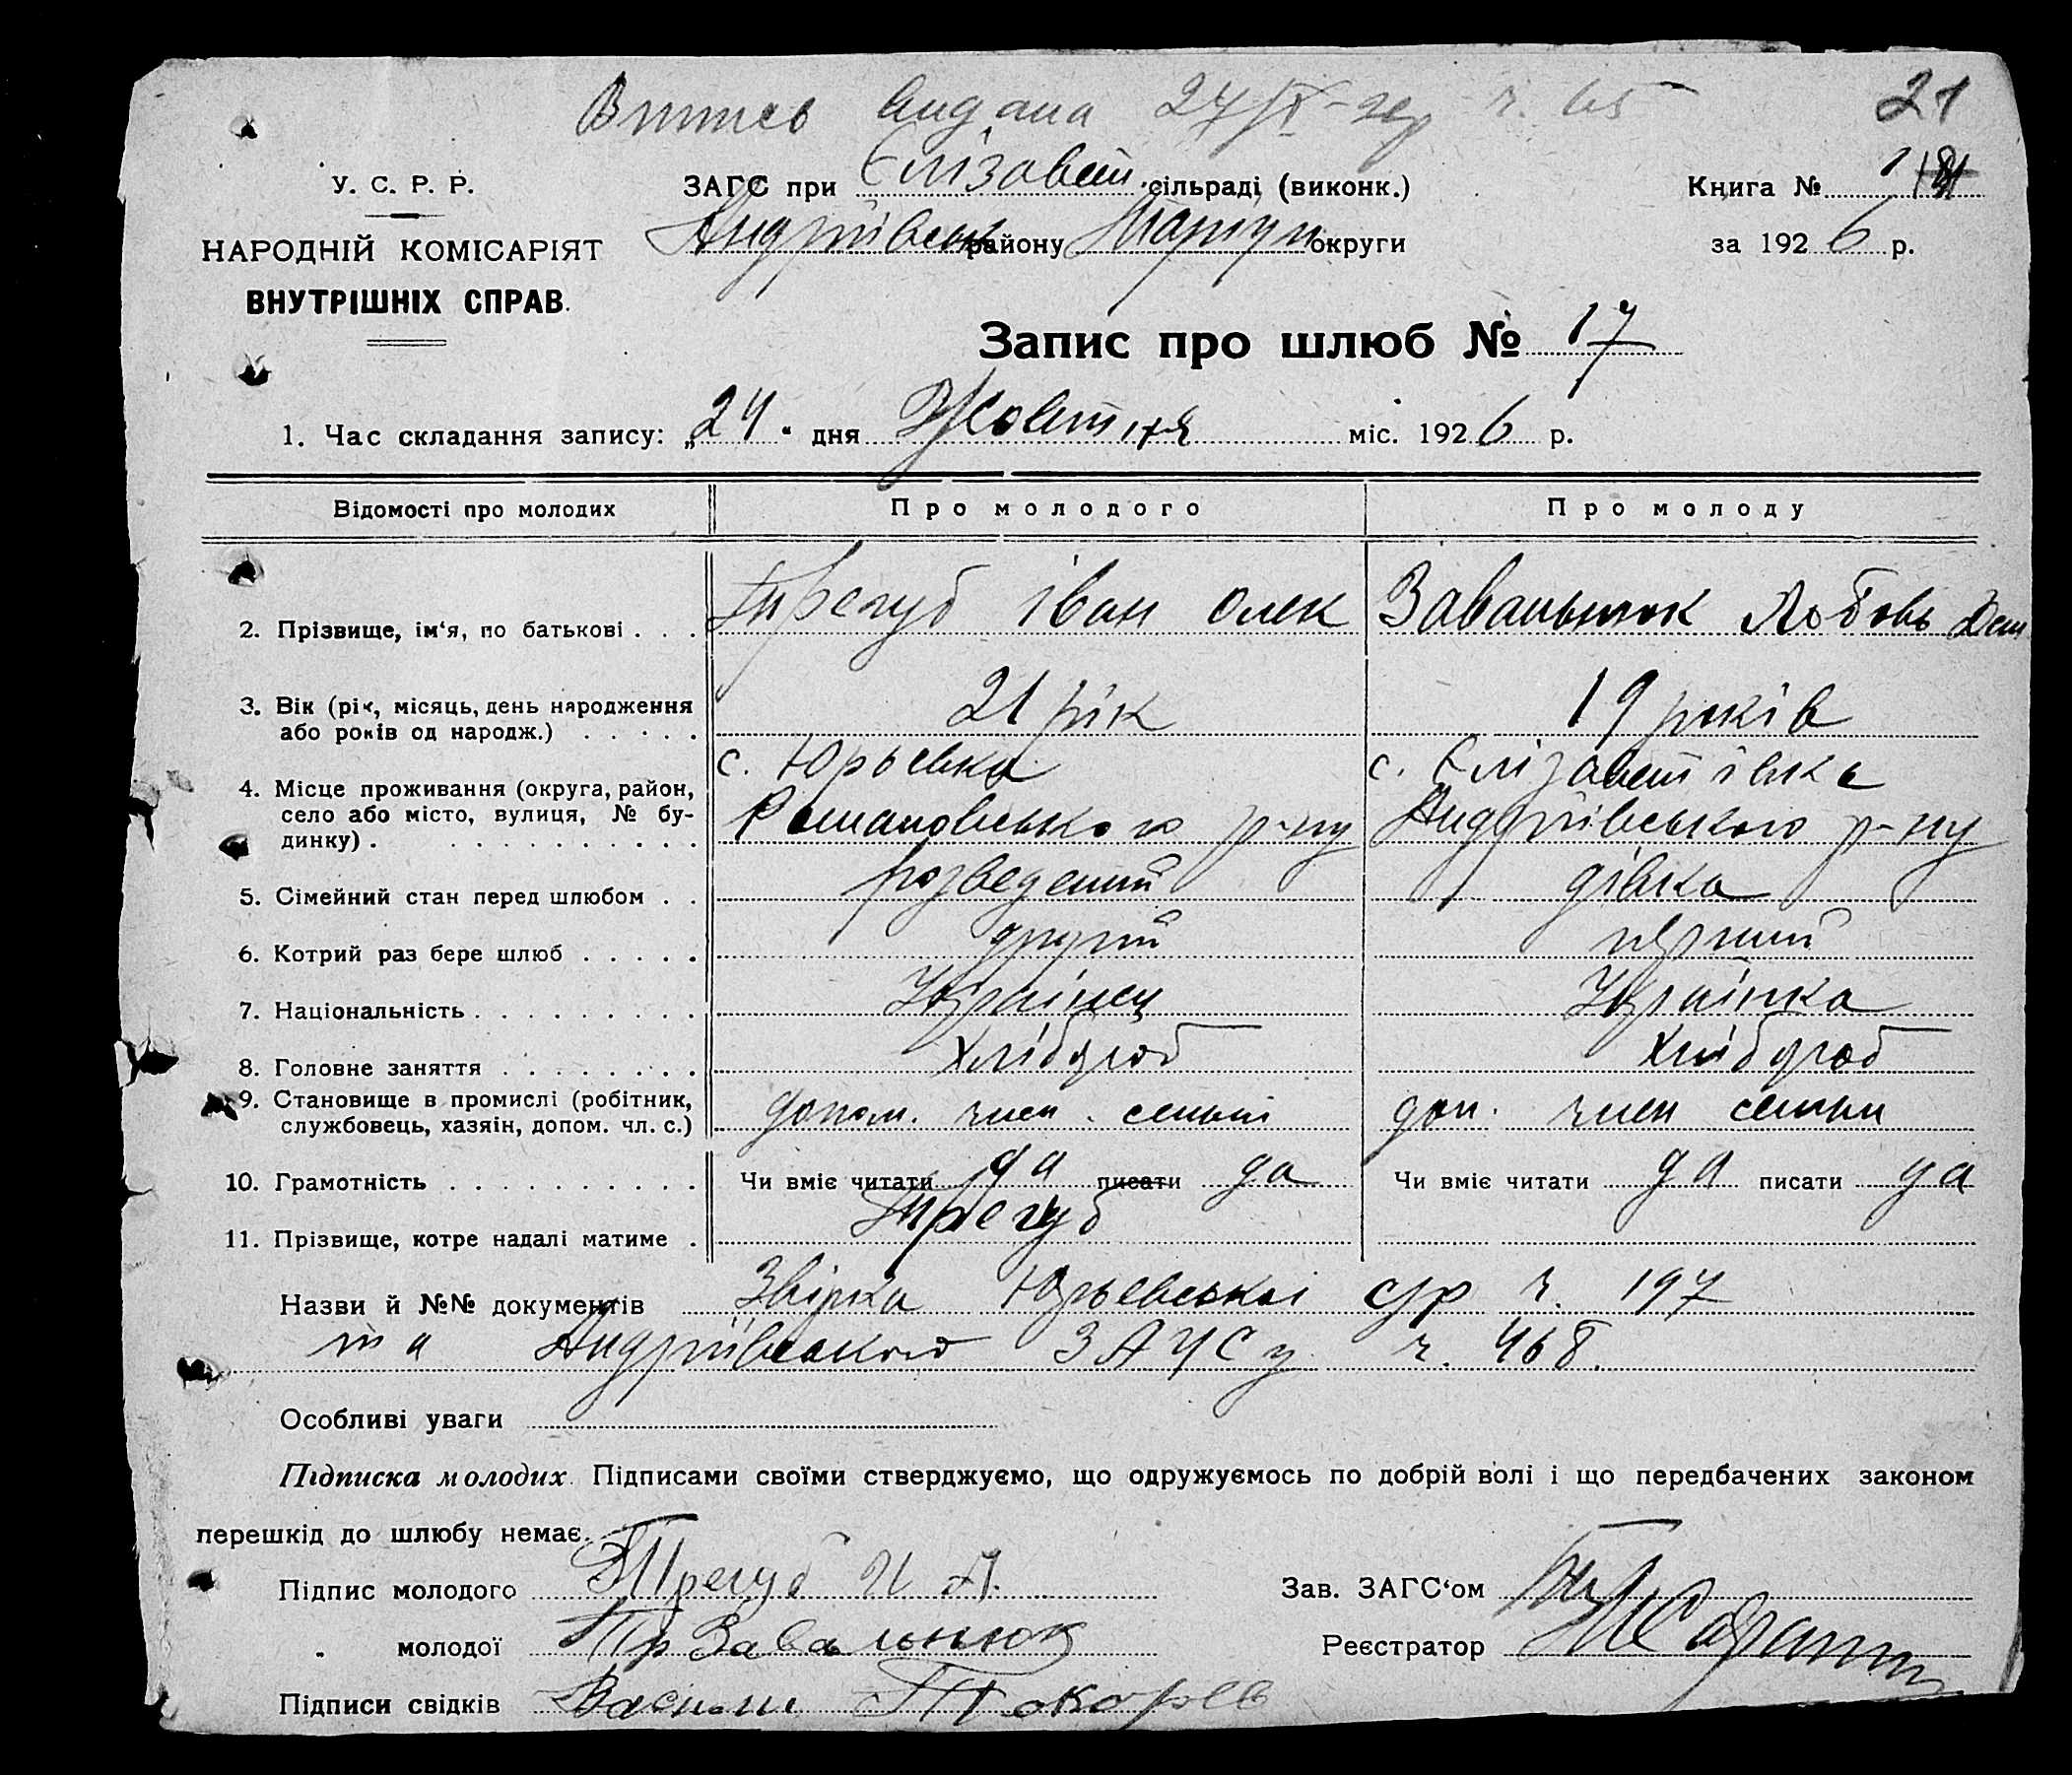 21
У. С. Р. Р.
ЗАГС при Єлізавет. сільраді (виконк.)
Книга № 1
НАРОДНІЙ КОМІСАРІЯТ
Андріївськ району округи
за 1926 р.
ВНУТРІШНІХ СПРАВ.
Запис про шлюб № 17
1. Час складання запису: „24“ дня Жовтня міс. 1926 р.
Відомості про молодих
Про молодого
Про молоду
2. Прізвище, ім‘я, по батькові . . .
Трегуб Іван Олек
Завальнюк Любовь Дем
3. Вік (рік, місяць, день народження
або років од народж.) . . . . .
21 рік
19 років
4. Місце проживання (округа, район,
село або місто, вулиця, № бу-
динку) . . . . . . . . . .
с. Юрьевка
Романовського р-ну
с. Єлізаветівка
Андріївського р-ну
5. Сімейний стан перед шлюбом . .
розведений
дівка
6. Котрий раз бере шлюб . . . . .
другий
перший
7. Національність . . . . . . . . .
Українец
Українка
8. Головне заняття . . . . . . . .
Хлібороб
Хлібороб
9. Становище в промислі (робітник,
службовець, хазяін, допом. чл. с.)
допом. член. семьи
доп. член семьи
10. Грамотність . . . . . . . . . .
Чи вміє читати да писати да
Чи вміє читати да писати да
11. Прізвище, котре надалі матиме .
Трегуб
Назви й №№ документів Звірка Юрьевської с/р ч. 197
та Андріївського ЗАЧСу ч. 468.
Особливі уваги
Підписка молодих. Підписами своїми стверджуємо, що одружуємось по добрій волі і що передбачених законом
перешкід до шлюбу немає.
Підпис молодого Трегуб И А.
Зав. ЗАГС‘ом
„ молодої Завальнюк
Реєстратор
Підписи свідків Токорев